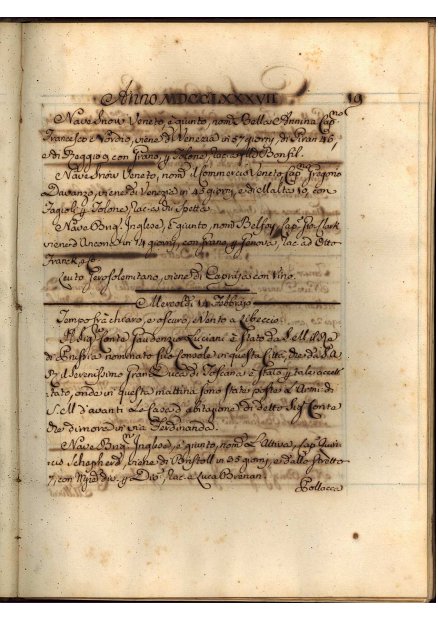 Anno MDCCLXXXVII 19
Nave Snow Veneto, è giunto, nom.o Bella Annina Cap.n
Francesco Nordio, viene di Venezia in 57 giorni, di Piran 46
e di Reggio 9 con Grano, p Tolone, rac. a Bonfil.
Nave Snow Veneto, nom.o Il Commercio Veneto Cap.n Gregorio
Davanzo, viene di Venezia in 45 giorni, e di Malta 10, con
Fagioli p Tolone, rac. es di Spetta.
Nave Brig. Inglese, è giunto, nom.o Belfoy, Cap.n Clark
viene d'Ancona in giorni, con grano p Genova, rac. ad Otto
Franck e
Leuto Gerosolemitano, viene di Capraja con vino.
Mercoldì 14 Febbrajo
Tempo frà chiaro, e oscuro, e Vento a Libeccio.
Il Sig. Conte Gaudenzio Luciani è stato da S. M. il Rè
di Prussia nominato suo Console in questa Città, che da S. A.
R. il Serenissimo Gran Duca di Toscana è stato p tale accet
tato, onde in questa mattina sono state poste l'Armi di
S. M. d'avanti la Casa d'abitazione di detto Sig. Conte
che dimora in via Ferdinanda.
Nave Brig. Inglese, è giunto, nom.o L'Attiva, Cap.
Shepherd, viene di Bristoll in 35 giorni, e dallo stretto
7, con div. p Div. rac. a Luca Brenan.
Pollacca